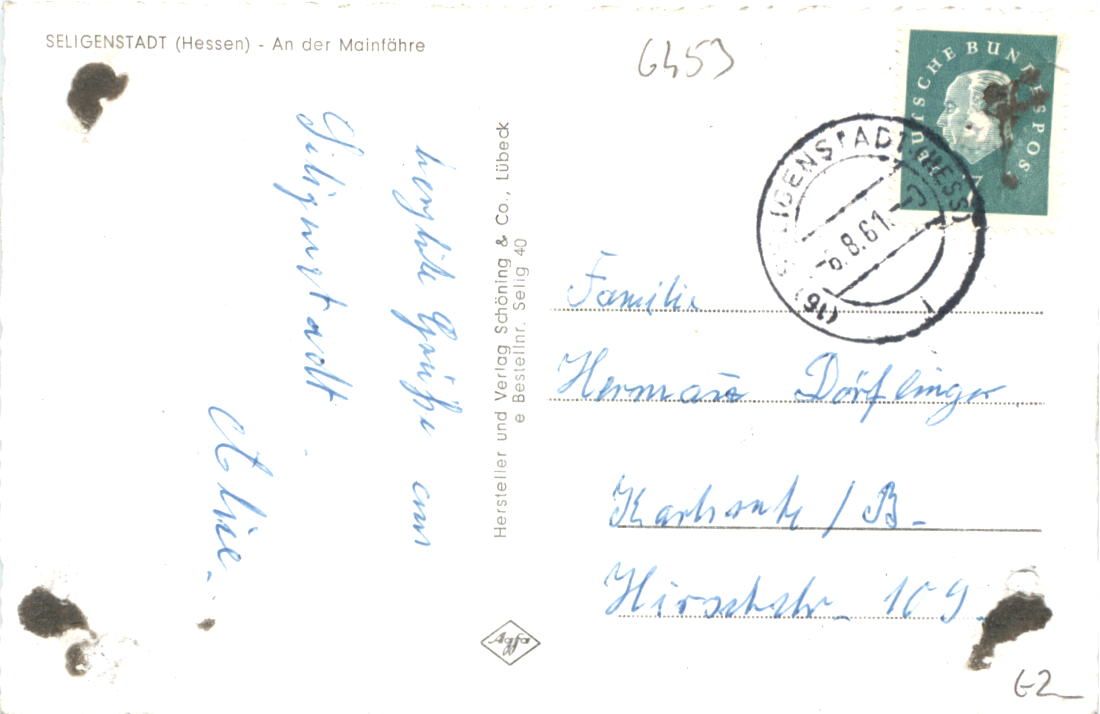 SELIGENSTADT (Hessen) - An der Mainfähre
6453
DEUTSCHE BUNDESPOST
7
(16) SELIGENSTADT (HESS)
6.8.61.
herzliche Grüße aus
Seligenstadt
Hersteller und Verlag Schöning & Co., Lübeck
e Bestellnr. Selig 40
Familie
Hermann Dörflinger
Karlsruhe / B.
Hirschstr. 109
Agfa